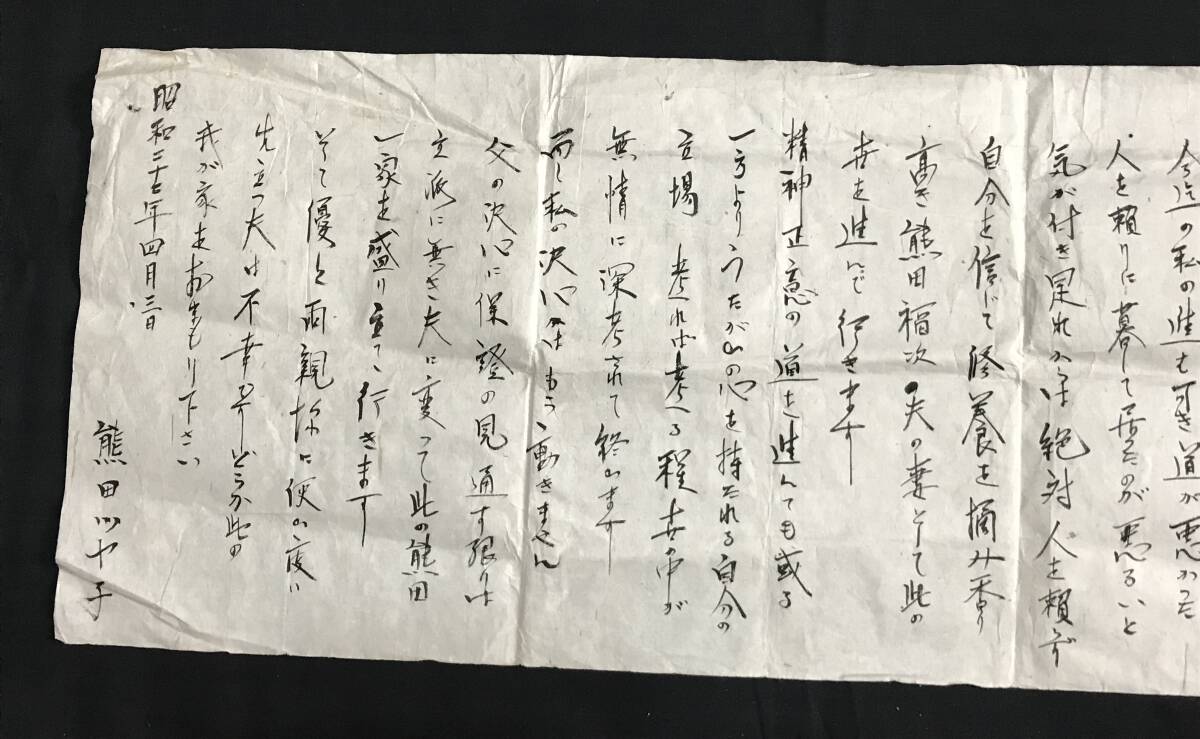 今迄の私の進むすき道が悪かった
人を頼りに暮して居たのが悪るいと
気が付き是れからは絶対人を頼らず
自分を信じて修養を摘み
高き熊田福次の夫の妻として此の
世を進んで行きます
精神正意の道を進んでも或る
一方よりうたがひの心を持たれる自分の
立場 考へれば考へる程世の中が
無情に深考されて終ひます
而し私の決心はもう動きません
父の決心に保證の見通す限りは
立派に無き夫に変って此の熊田
一家を盛り立てゝ行きます
そして優と両親
先立つ夫は不幸ですどうか此の
我が家をおまもり下さい
昭和二十七年四月三日
熊田ツヤ子